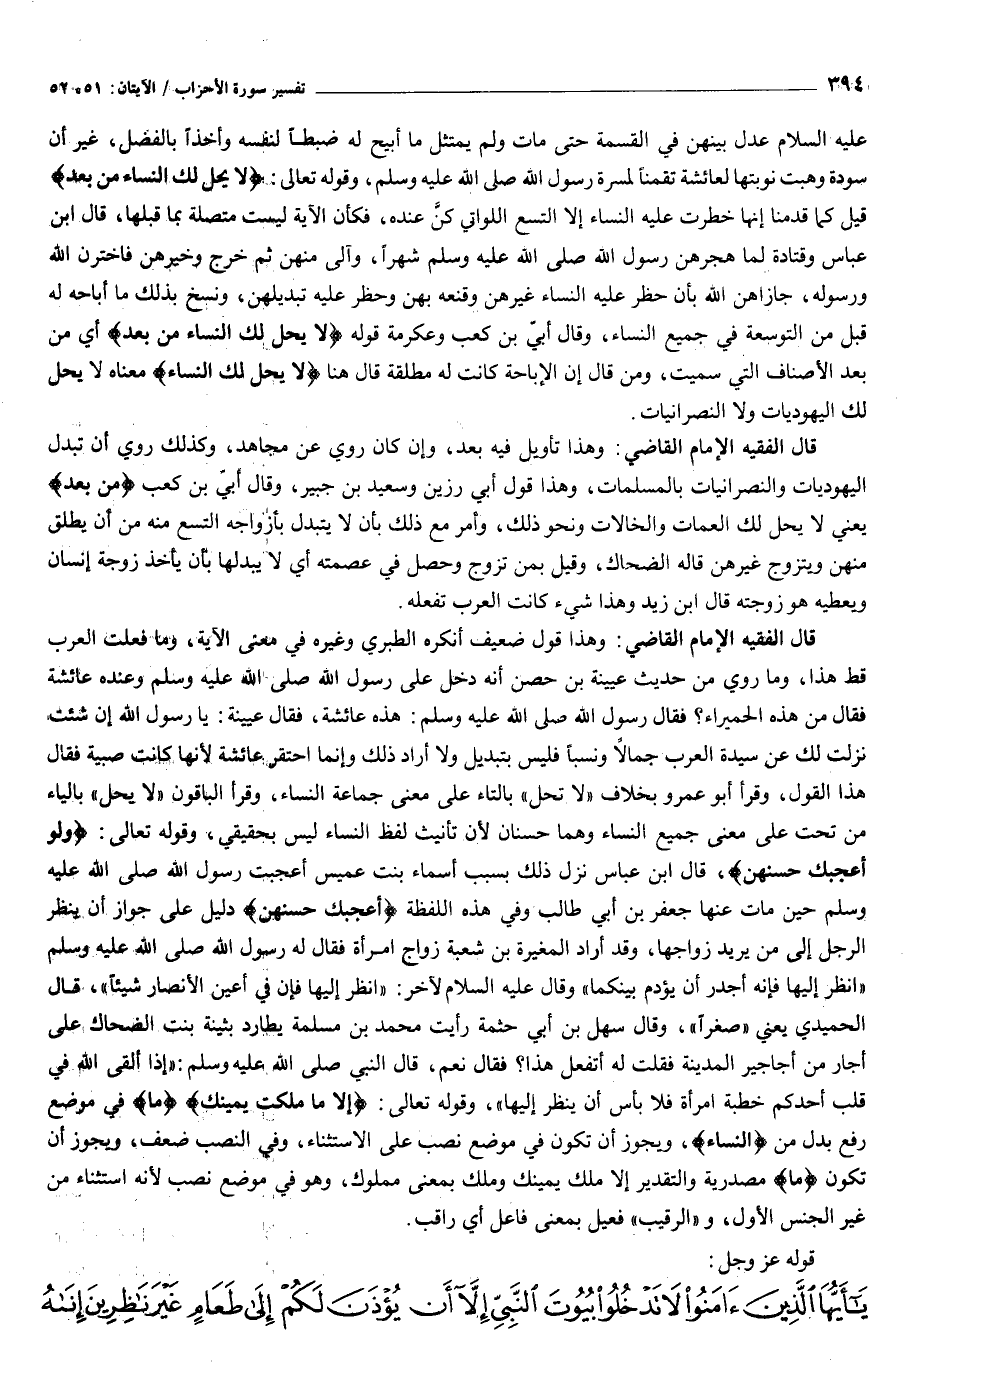 ٣٩٤ ــــــــــ تفسير سورة الأحزاب / الآيتان: ٥١، ٥٢
عليه السلام عدل بينهن في القسمة حتى مات ولم يمتثل ما أبيح له ضبطاً لنفسه وأخذاً بالفضل، غير أن
سودة وهبت نوبتها لعائشة تقمناً لمسرة رسول الله صلى الله عليه وسلم، وقوله تعالى: ﴿لا يحل لك النساء من بعد﴾
قيل كما قدمنا إنها خطرت عليه النساء إلا التسع اللواتي كنَّ عنده، فكأن الآية ليست متصلة بما قبلها، قال ابن
عباس وقتادة لما هجرهن رسول الله صلى الله عليه وسلم شهراً، وآلى منهن ثم خرج وخيرهن فاخترن الله
ورسوله، جازاهن الله بأن حظر عليه النساء غيرهن وقنعه بهن وحظر عليه تبديلهن، ونسخ بذلك ما أباحه له
قبل من التوسعة في جميع النساء، وقال أبيّ بن كعب وعكرمة قوله ﴿لا يحل لك النساء من بعد﴾ أي من
بعد الأصناف التي سميت، ومن قال إن الإباحة كانت له مطلقة قال هنا ﴿لا يحل لك النساء﴾ معناه لا يحل
لك اليهوديات ولا النصرانيات.
قال الفقيه الإمام القاضي: وهذا تأويل فيه بعد، وإن كان روي عن مجاهد، وكذلك روي أن تبدل
اليهوديات والنصرانيات بالمسلمات، وهذا قول أبي رزين وسعيد بن جبير، وقال أبيّ بن كعب ﴿من بعد﴾
يعني لا يحل لك العمات والخالات ونحو ذلك، وأمر مع ذلك بأن لا يتبدل بأزواجه التسع منه من أن يطلق
منهن ويتزوج غيرهن قاله الضحاك، وقيل بمن تزوج وحصل في عصمته أي لا يبدلها بأن يأخذ زوجة إنسان
ويعطيه هو زوجته قال ابن زيد وهذا شيء كانت العرب تفعله.
قال الفقيه الإمام القاضي: وهذا قول ضعيف أنكره الطبري وغيره في معنى الآية، وما فعلت العرب
قط هذا، وما روي من حديث عيينة بن حصن أنه دخل على رسول الله صلى الله عليه وسلم وعنده عائشة
فقال من هذه الحميراء؟ فقال رسول الله صلى الله عليه وسلم: هذه عائشة، فقال عيينة: يا رسول الله إن شئت
نزلت لك عن سيدة العرب جمالاً ونسباً فليس بتبديل ولا أراد ذلك وإنما احتقر عائشة لأنها كانت صبية فقال
هذا القول، وقرأ أبو عمرو بخلاف «لا تحل» بالتاء على معنى جماعة النساء، وقرأ الباقون «لا يحل» بالياء
من تحت على معنى جميع النساء وهما حسنان لأن تأنيث لفظ النساء ليس بحقيقي، وقوله تعالى: ﴿ولو
أعجبك حسنهن﴾، قال ابن عباس نزل ذلك بسبب أسماء بنت عميس أعجبت رسول الله صلى الله عليه
وسلم حين مات عنها جعفر بن أبي طالب وفي هذه اللفظة ﴿أعجبك حسنهن﴾ دليل على جواز أن ينظر
الرجل إلى من يريد زواجها، وقد أراد المغيرة بن شعبة زواج امرأة فقال له رسول الله صلى الله عليه وسلم
«انظر إليها فإنه أجدر أن يؤدم بينكما» وقال عليه السلام لآخر: «انظر إليها فإن في أعين الأنصار شيئاً»، قال
الحميدي يعني «صغراً»، وقال سهل بن أبي حثمة رأيت محمد بن مسلمة يطارد بثينة بنت الضحاك على
أجار من أجاجير المدينة فقلت له أتفعل هذا؟ فقال نعم، قال النبي صلى الله عليه وسلم: «إذا ألقى الله في
قلب أحدكم خطبة امرأة فلا بأس أن ينظر إليها»، وقوله تعالى: ﴿إلا ما ملكت يمينك﴾ ﴿ما﴾ في موضع
رفع بدل من ﴿النساء﴾، ويجوز أن تكون في موضع نصب على الاستثناء، وفي النصب ضعف، ويجوز أن
تكون ﴿ما﴾ مصدرية والتقدير إلا ملك يمينك وملك بمعنى مملوك، وهو في موضع نصب لأنه استثناء من
غير الجنس الأول، و «الرقيب» فعيل بمعنى فاعل أي راقب.
قوله عز وجل:
يَٰٓأَيُّهَا ٱلَّذِينَ ءَامَنُوا۟ لَا تَدْخُلُوا۟ بُيُوتَ ٱلنَّبِىِّ إِلَّآ أَن يُؤْذَنَ لَكُمْ إِلَىٰ طَعَامٍ غَيْرَ نَٰظِرِينَ إِنَىٰهُ